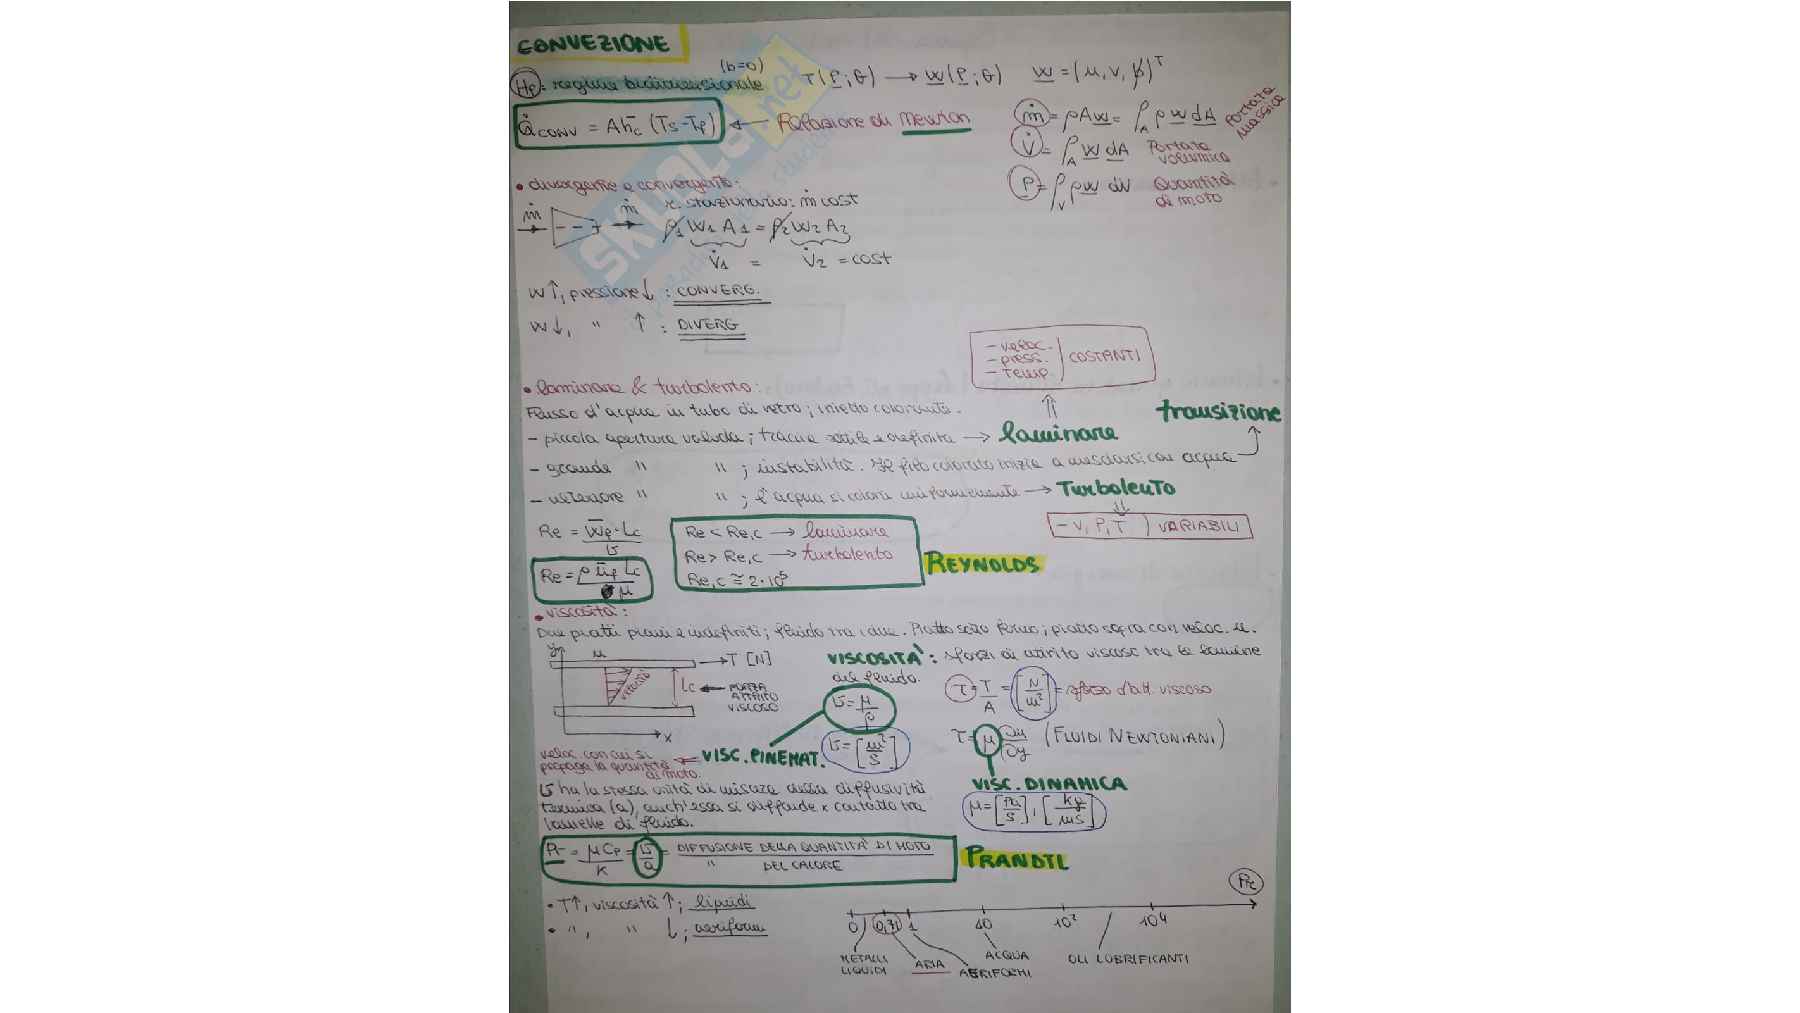 CONVEZIONE
(b=0)
Hp: regime bidimensionale T(P;θ) → w(P;θ) w = (u, v, p)ᵀ
Q̇ CONV = A h̄c (Ts - Tf) ← Relazione di Newton
ṁ = ρAw = ∫A ρ w dA Portata massica
V̇ = ∫A w dA Portata volumica
P = ∫V ρw dV Quantità di moto
• divergente e convergente:
ṁ ṁ r. stazionario: ṁ cost
ρ1 W1 A1 = ρ2 W2 A2
V̇1 = V̇2 = cost
W↑, pressione↓ : CONVERG.
W↓, " ↑ : DIVERG
- veloc.
- press. COSTANTI
- temp.
• laminare & turbolento:
Flusso d'acqua in tubo di vetro; inietto colorante.
transizione
- piccola apertura valvola; traccia sottile e definita → laminare
- grande " " ; instabilità. Il filo colorato inizia a mescolarsi con acqua
- ulteriore " " ; l'acqua si colora uniformemente → Turbolento
- V, P, T VARIABILI
Re = w̄f · Lc / ʋ
Re = ρ ūf Lc / μ
Re < Re,c → laminare
Re > Re,c → turbolento
Re,c ≅ 2·10⁵
REYNOLDS
• viscosità:
Due piatti piani e indefiniti; fluido tra i due. Piatto sotto fermo; piatto sopra con veloc. u.
y u → T [N]
velocità Lc ← FORZA ATTRITO VISCOSO
x
VISCOSITÀ: sforzi di attrito viscosi tra le lamine
del fluido.
τ = T/A = [N/m²] = sforzo d'att. viscoso
ʋ = μ/ρ
ʋ = [m²/S]
τ = μ ∂u/∂y (FLUIDI NEWTONIANI)
veloc. con cui si
propaga la quantità
di moto. ← VISC. PINEMAT.
VISC. DINAMICA
μ = [Pa/S], [kg/mS]
ʋ ha la stessa unità di misura della diffusività
termica (a), anch'essa si diffonde x contatto tra
lamelle di fluido.
Pr = μCp/K = ʋ/a = DIFFUSIONE DELLA QUANTITA' DI MOTO / " DEL CALORE
PRANDTL
• T↑, viscosità ↑; liquidi
• ", " ↓; aeriformi
Pr
0 0,71 1 10 10² 10⁴
METALLI LIQUIDI ARIA AERIFORMI ACQUA OLI LUBRIFICANTI
SKUOLA.net